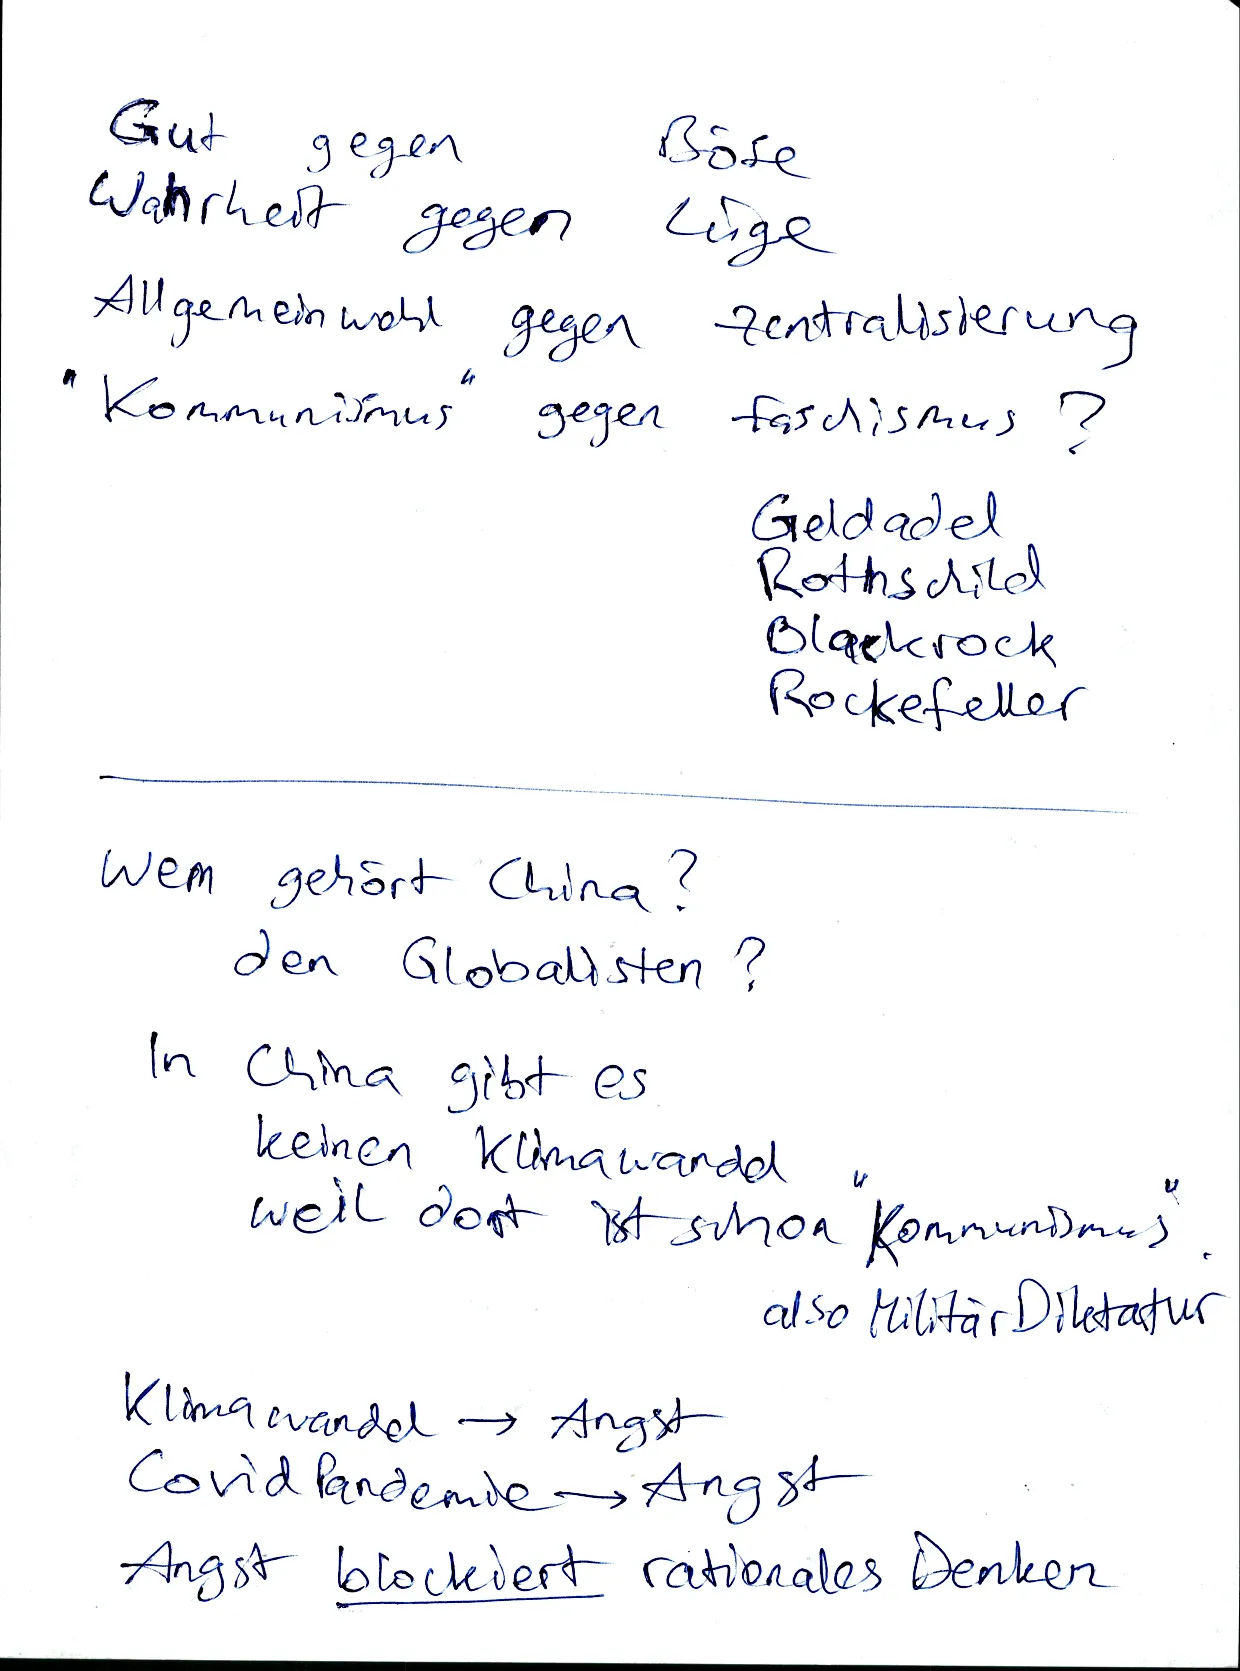 Gut gegen Böse
Wahrheit gegen Lüge
Allgemeinwohl gegen Zentralisierung
"Kommunismus" gegen faschismus ?
Geldadel
Rothschild
Blackrock
Rockefeller
Wem gehört China ?
den Globalisten ?
In China gibt es
keinen Klimawandel
weil dort ist schon "Kommunismus".
also MilitärDiktatur
Klimawandel → Angst
Covid Pandemie → Angst
Angst blockiert rationales Denken